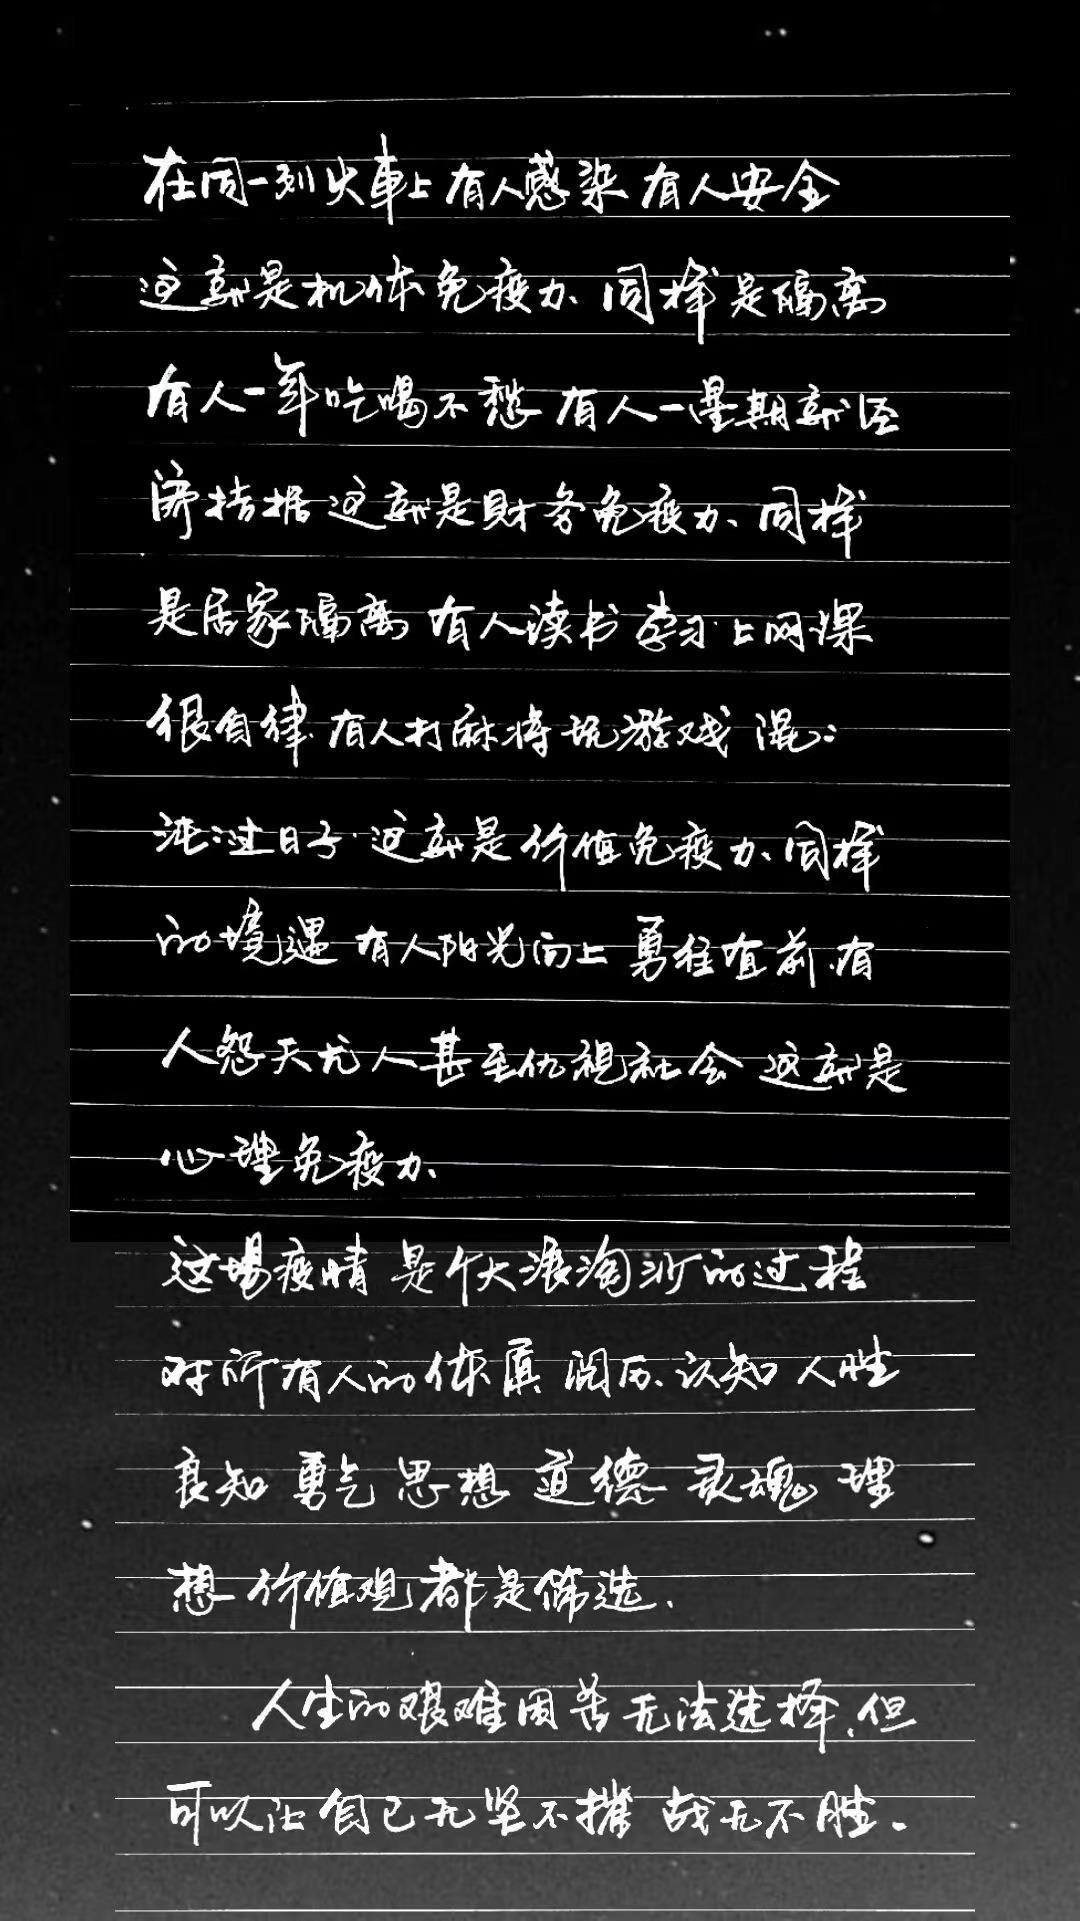 在同一列火車上有人感染有人安全
这就是机体免疫力、同样是隔离
有人一年吃喝不愁有人一星期就经
济拮据这就是財务免疫力、同样
是居家隔离有人读书学习上网课
很自律.有人打麻将玩游戏混:
沌:过日子.这就是价值免疫力、同样
的境遇有人阳光向上勇往直前.有
人怨天尤人甚至仇視社会这就是
心理免疫力、
这場疫情是个大浪淘沙的过程
对所有人的体质阅历、认知人性
良知勇气思想道德灵魂理
想价值观都是筛选、
人生的艰难困苦无法选择、但
可以让自己无坚不摧战无不胜.